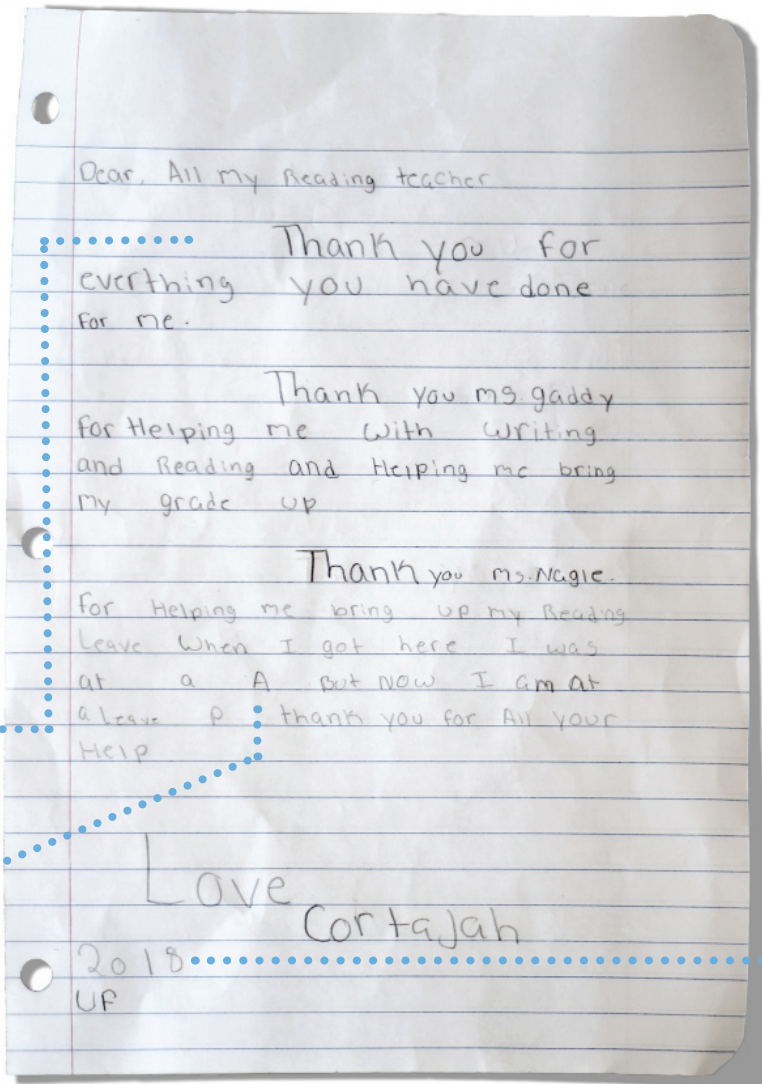 Dear, All my Reading teacher
Thank you for
everthing you have done
for me.
Thank you ms. gaddy
for Helping me with writing
and Reading and Helping me bring
my grade up
Thank you ms. Nagle.
for Helping me bring up my Reading
Leave When I got here I was
at a A But NOW I am at
a Leave P thank you for All your
Help
Love
Cortajah
2018
UF